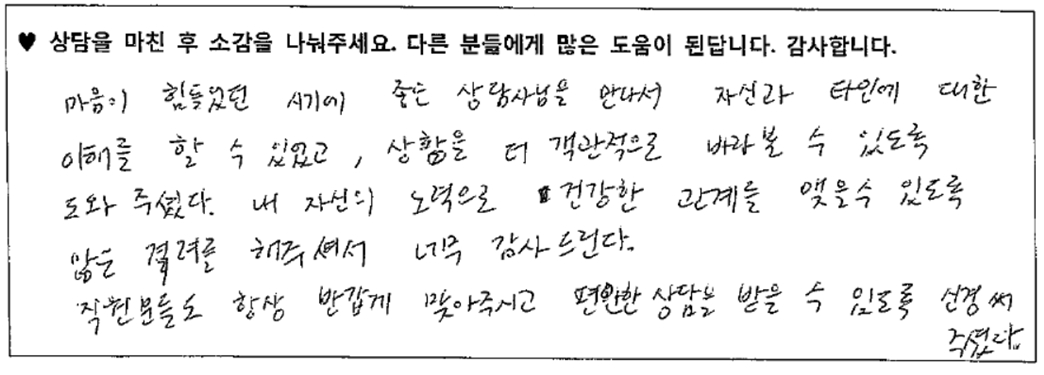 ♥ 상담을 마친 후 소감을 나눠주세요. 다른 분들에게 많은 도움이 된답니다. 감사합니다.
마음이 힘들었던 시기에 좋은 상담사님을 만나서 자신과 타인에 대한
이해를 할 수 있었고, 상황을 더 객관적으로 바라볼 수 있도록
도와 주셨다. 내 자신의 노력으로 건강한 관계를 맺을수 있도록
많은 격려를 해주셔서 너무 감사드린다.
직원분들도 항상 반갑게 맞아주시고 편안한 상담을 받을 수 있도록 신경써
주셨다.